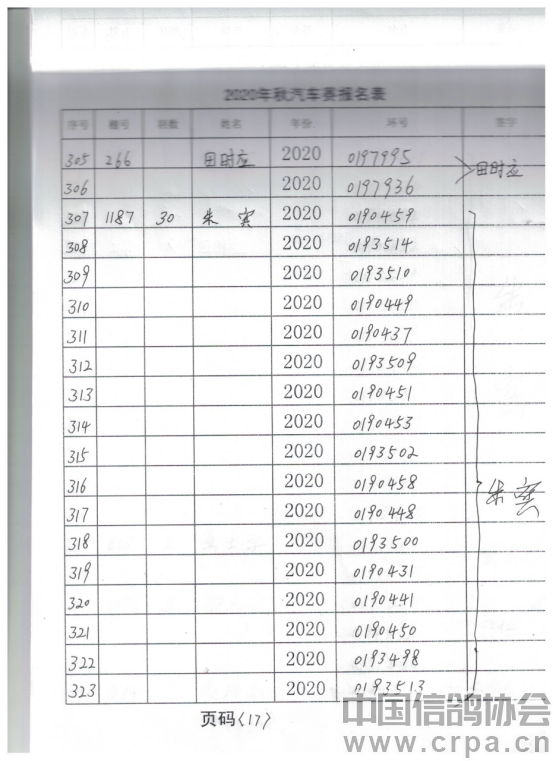 2020年秋汽车赛报名表
序号 棚号 羽数 姓名 年份 环号 签字
305 266 田时应 2020 0197995 田时应
306 2020 0197936
307 1187 30 朱宾 2020 0190459
308 2020 0193514
309 2020 0193510
310 2020 0190449
311 2020 0190437
312 2020 0193509
313 2020 0190451
314 2020 0190453
315 2020 0193502
316 2020 0190458 朱宾
317 2020 0190448
318 2020 0193500
319 2020 0190431
320 2020 0190441
321 2020 0190450
322 2020 0193498
323 2020 0193513
页码(17)
中国信鸽协会
www.crpa.cn